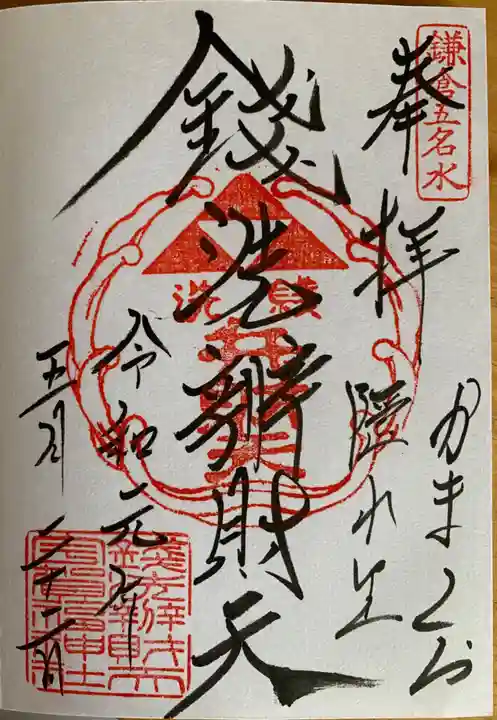 鎌倉五名水
奉拝
かまくら
隠れ里
錢洗辨財天
令和元年
五月二十二日
錢洗